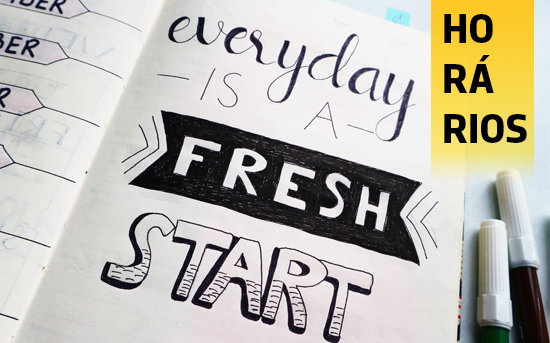 everyday
IS A
FRESH
START
HO
RÁ
RIOS
BER
BER
R